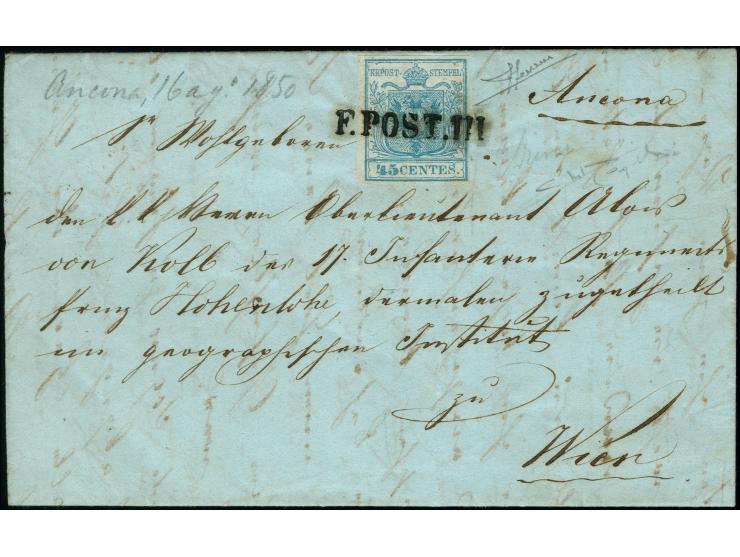 Ancona, 16 ag. 1850
KKPOST-STEMPEL
F. POST. III
45 CENTES.
Ancona
Sr Wohlgeboren
den k. k. Herrn Oberlieutenant Alois
von Kolb des 17. Infanterie Regiments
Prinz Hohenlohe, dermalen zugetheilt
im geographischen Institut
zu
Wien